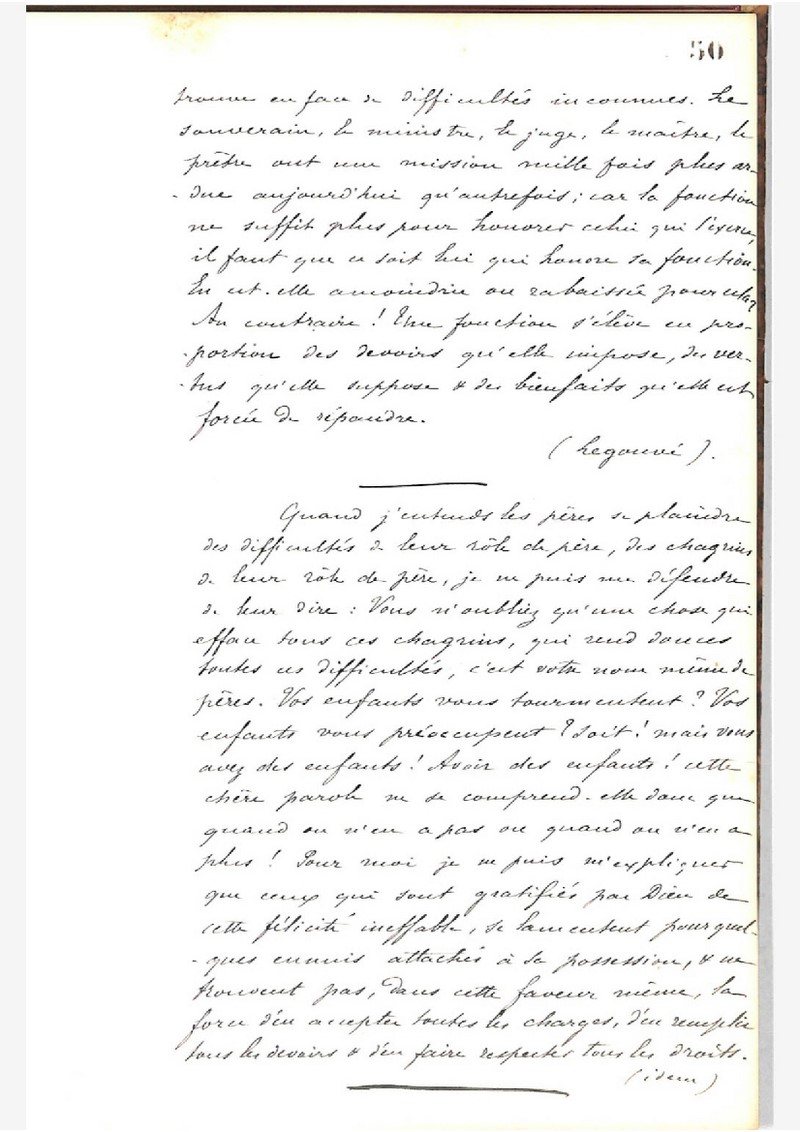 50
trouve en face de difficultés inconnues. Le
souverain, le ministre, le juge, le maître, le
prêtre ont une mission mille fois plus ar-
-due aujourd'hui qu'autrefois ; car la fonction
ne suffit plus pour honorer celui qui l'exerce,
il faut que ce soit lui qui honore sa fonction.
En est-elle amoindrie ou rabaissée pour cela?
Au contraire ! Une fonction s'élève en pro-
-portion des devoirs qu'elle impose, des ver-
-tus qu'elle suppose & des bienfaits qu'elle est
forcée de répandre.
(Legouvé).
Quand j'entends les pères se plaindre
des difficultés de leur rôle de père, des chagrins
de leur rôle de père, je ne puis me défendre
de leur dire : Vous n'oubliez qu'une chose qui
efface tous ces chagrins, qui rend douces
toutes ces difficultés, c'est votre nom même de
pères. Vos enfants vous tourmentent ? Vos
enfants vous préoccupent ? Soit ! mais vous
avez des enfants ! Avoir des enfants ! cette
chère parole ne se comprend-elle donc que
quand on n'en a pas ou quand on n'en a
plus ! Pour moi je ne puis m'expliquer
que ceux qui sont gratifiés par Dieu de
cette félicité ineffable, se lamentent pour quel-
-ques ennuis attachés à sa possession, & ne
trouvent pas, dans cette faveur même, la
force d'en accepter toutes les charges, d'en remplir
tous les devoirs & d'en faire respecter tous les droits.
(idem)